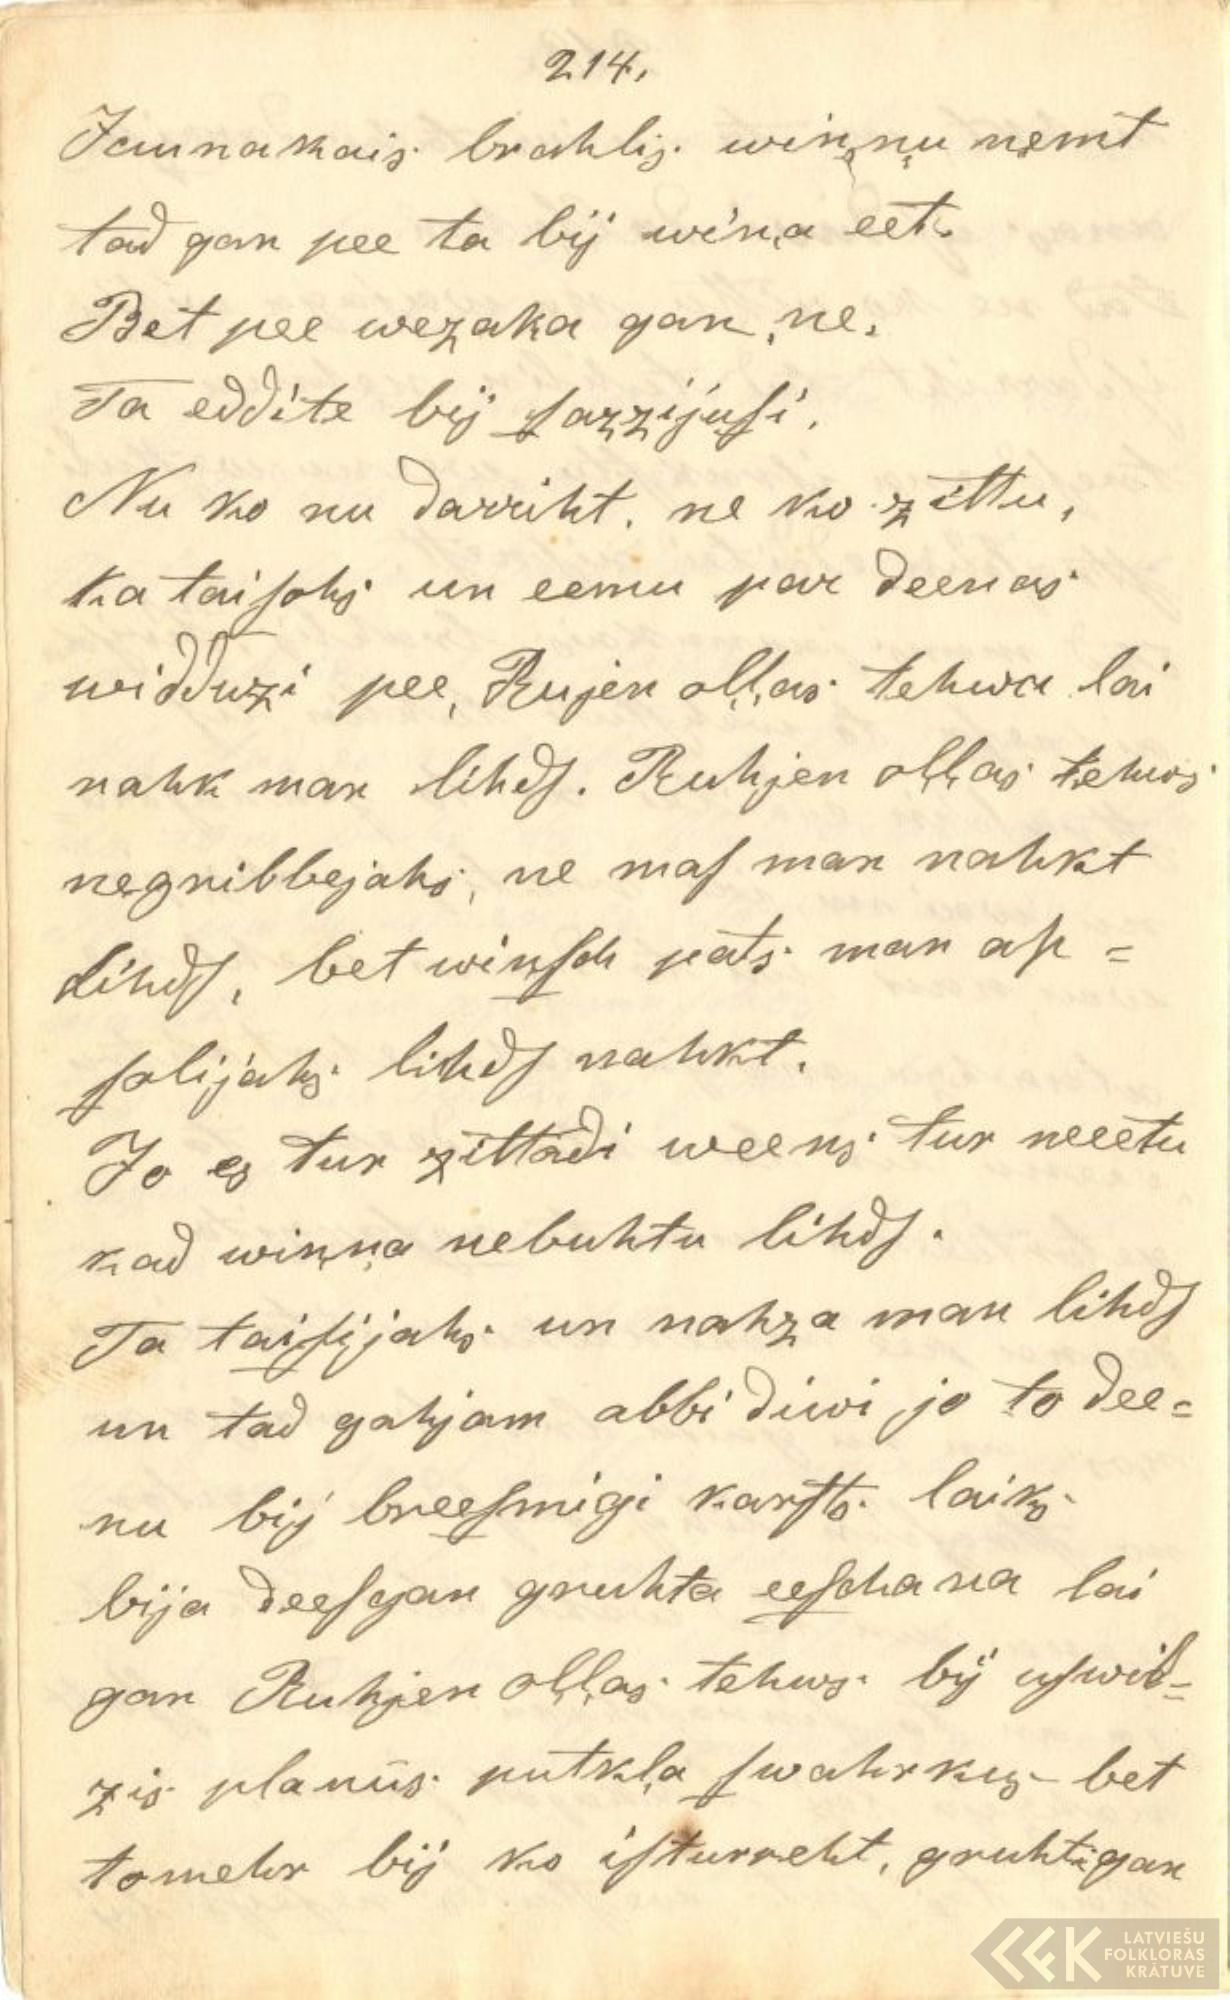 214.
Jaunakais brahlis wiņņu ņemt
tad gan pee ta bij wiņa eet.
Bet pee wezaka gan, ne.
Ta eddite bij sazzijusi.
Nu ko nu darriht. ne ko zittu,
ka taisohs un eemu par deenas
widduzi pee, Rujen oļļas tehwa lai
nahk man lihds. Ruhjen oļļas tehws
negribbejahs, ne mas man nahkt
lihds, bet winsch pats man ap=
solijahs lihds nahkt.
Jo es tur zittadi weens tur neeetu
kad wiņņa nebuhtu lihds.
Ta taisijahs un nahza man lihds
un tad gahjam abbi diwi jo to dee=
nu bij breesmigi karsts laiks
bija deesgan gruhta eeschana lai
gan Ruhjen oļļas tehws bij uswil=
zis planus putkļa swahrkus bet
tomehr bij ko isturreht, gruhti gan
LATVIEŠU
FOLKLORAS
KRĀTUVE